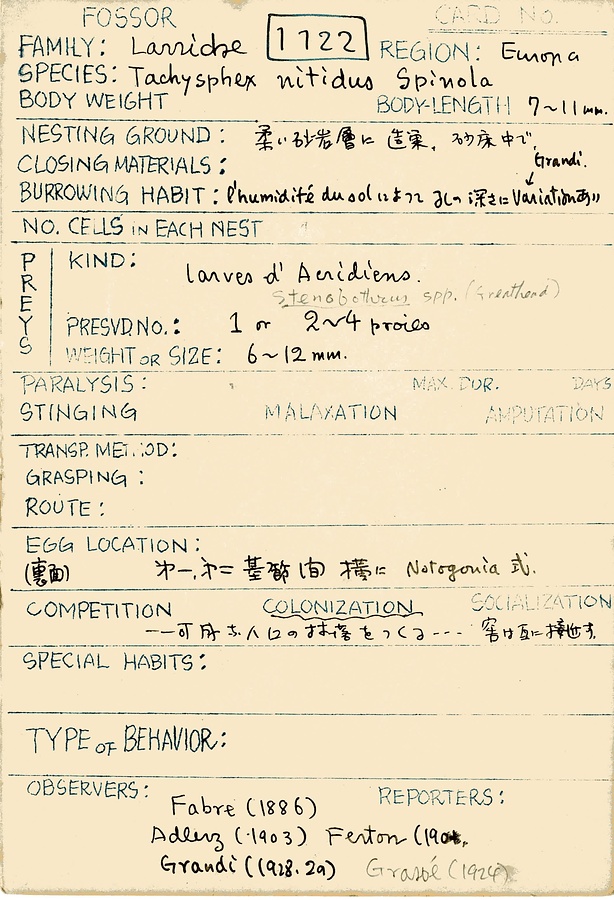 FOSSOR CARD NO.
FAMILY: Larridae 1722 REGION: Europa
SPECIES: Tachysphex nitidus Spinola
BODY WEIGHT BODY-LENGTH 7~11 mm.
NESTING GROUND: 柔い砂岩層に造巣, 砂床中で,
CLOSING MATERIALS: Grandi.
BURROWING HABIT: l'humidité du sol によって 深さに Variation あり
NO. CELLS IN EACH NEST
PREYS
KIND: larves d'Acridiens.
Stenobothrus spp. (Greathead)
PRESVD. NO.: 1 or 2~4 proies
WEIGHT OR SIZE: 6~12 mm.
PARALYSIS: MAX. DUR. DAYS
STINGING MALAXATION AMPUTATION
TRANSP. MET. OD:
GRASPING:
ROUTE:
EGG LOCATION:
(裏面) 第一, 第二 基節(間) 横に Notogonia 式.
COMPETITION COLONIZATION SOCIALIZATION
をつくる --- 窖は互に接近す,
SPECIAL HABITS:
TYPE OF BEHAVIOR:
OBSERVERS: REPORTERS:
Fabre (1886)
Adlerz (1903) Ferton
Grandi (1928.29) Grassé (1924)